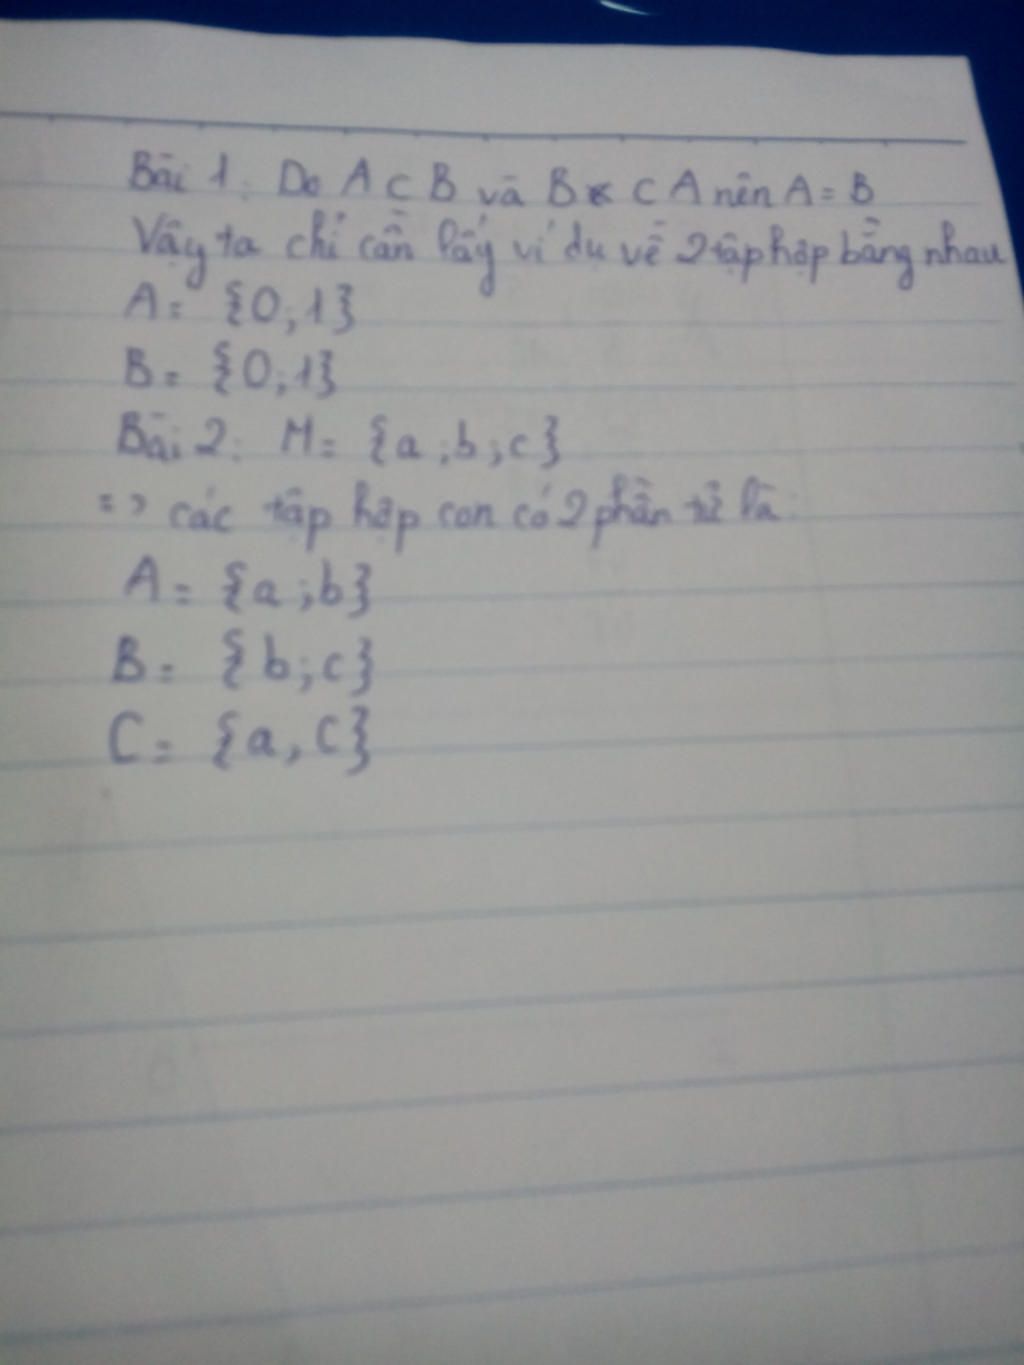 Bài 1: Do A ⊂ B và B ⊂ A nên A = B
Vậy ta chỉ cần lấy ví dụ về 2 tập hợp bằng nhau
A = {0; 1}
B = {0; 1}
Bài 2: M = {a; b; c}
=> các tập hợp con có 2 phần tử là:
A = {a; b}
B = {b; c}
C = {a, c}